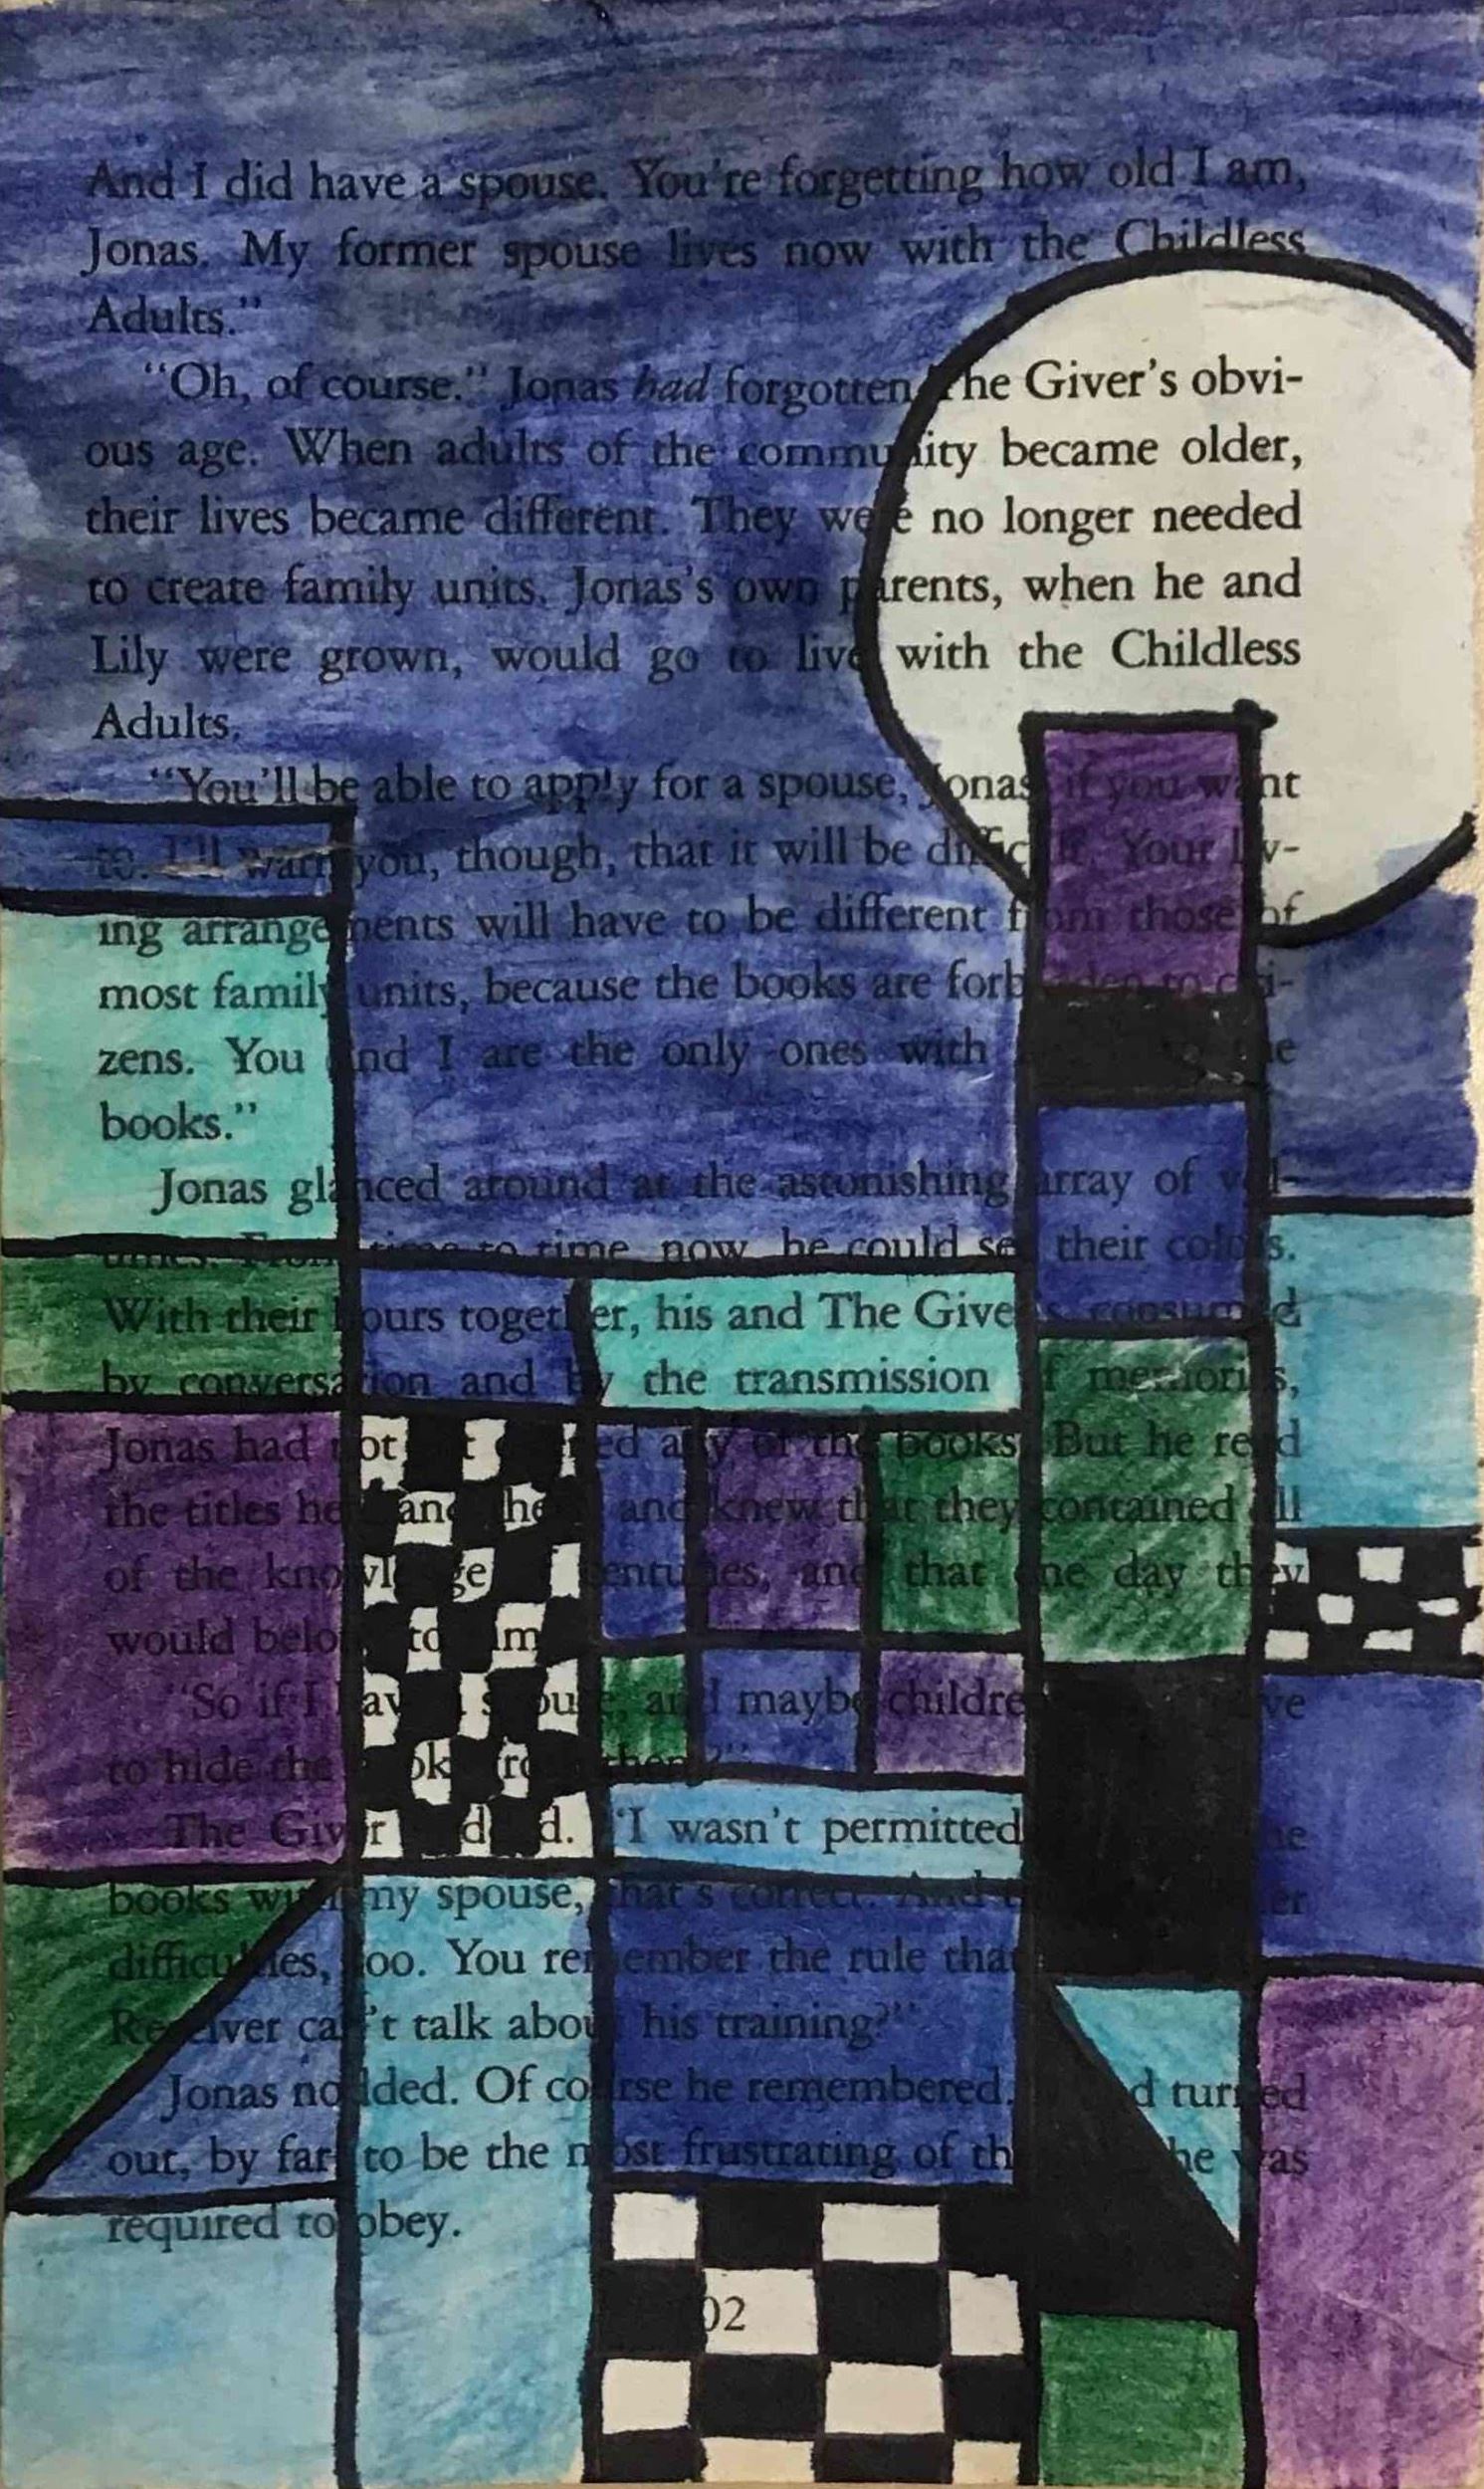 And I did have a spouse. You're forgetting how old I am,
Jonas. My former spouse lives now with the Childless
Adults."
"Oh, of course." Jonas had forgotten The Giver's obvi-
ous age. When adults of the community became older,
their lives became different. They were no longer needed
to create family units. Jonas's own parents, when he and
Lily were grown, would go to live with the Childless
Adults.
"You'll be able to apply for a spouse, Jonas, if you want
to. I'll warn you, though, that it will be difficult. Your liv-
ing arrangements will have to be different from those of
most family units, because the books are forbidden to citi-
zens. You and I are the only ones with the
books."
Jonas glanced around at the astonishing array of vol-
umes. From time to time, now, he could see their colors.
With their hours together, his and The Giver's, consumed
by conversation and by the transmission of memories,
Jonas had not yet opened any of the books. But he read
the titles here and there, and knew that they contained all
of the knowledge of centuries, and that one day they
would belong to him.
"So if I have a spouse, and maybe children, have
to hide the books from them?"
The Giver nodded. "I wasn't permitted the
books with my spouse, that's correct. And other
difficulties, too. You remember the rule that
Receiver can't talk about his training?"
Jonas nodded. Of course he remembered. turned
out, by far, to be the most frustrating of the he was
required to obey.
02